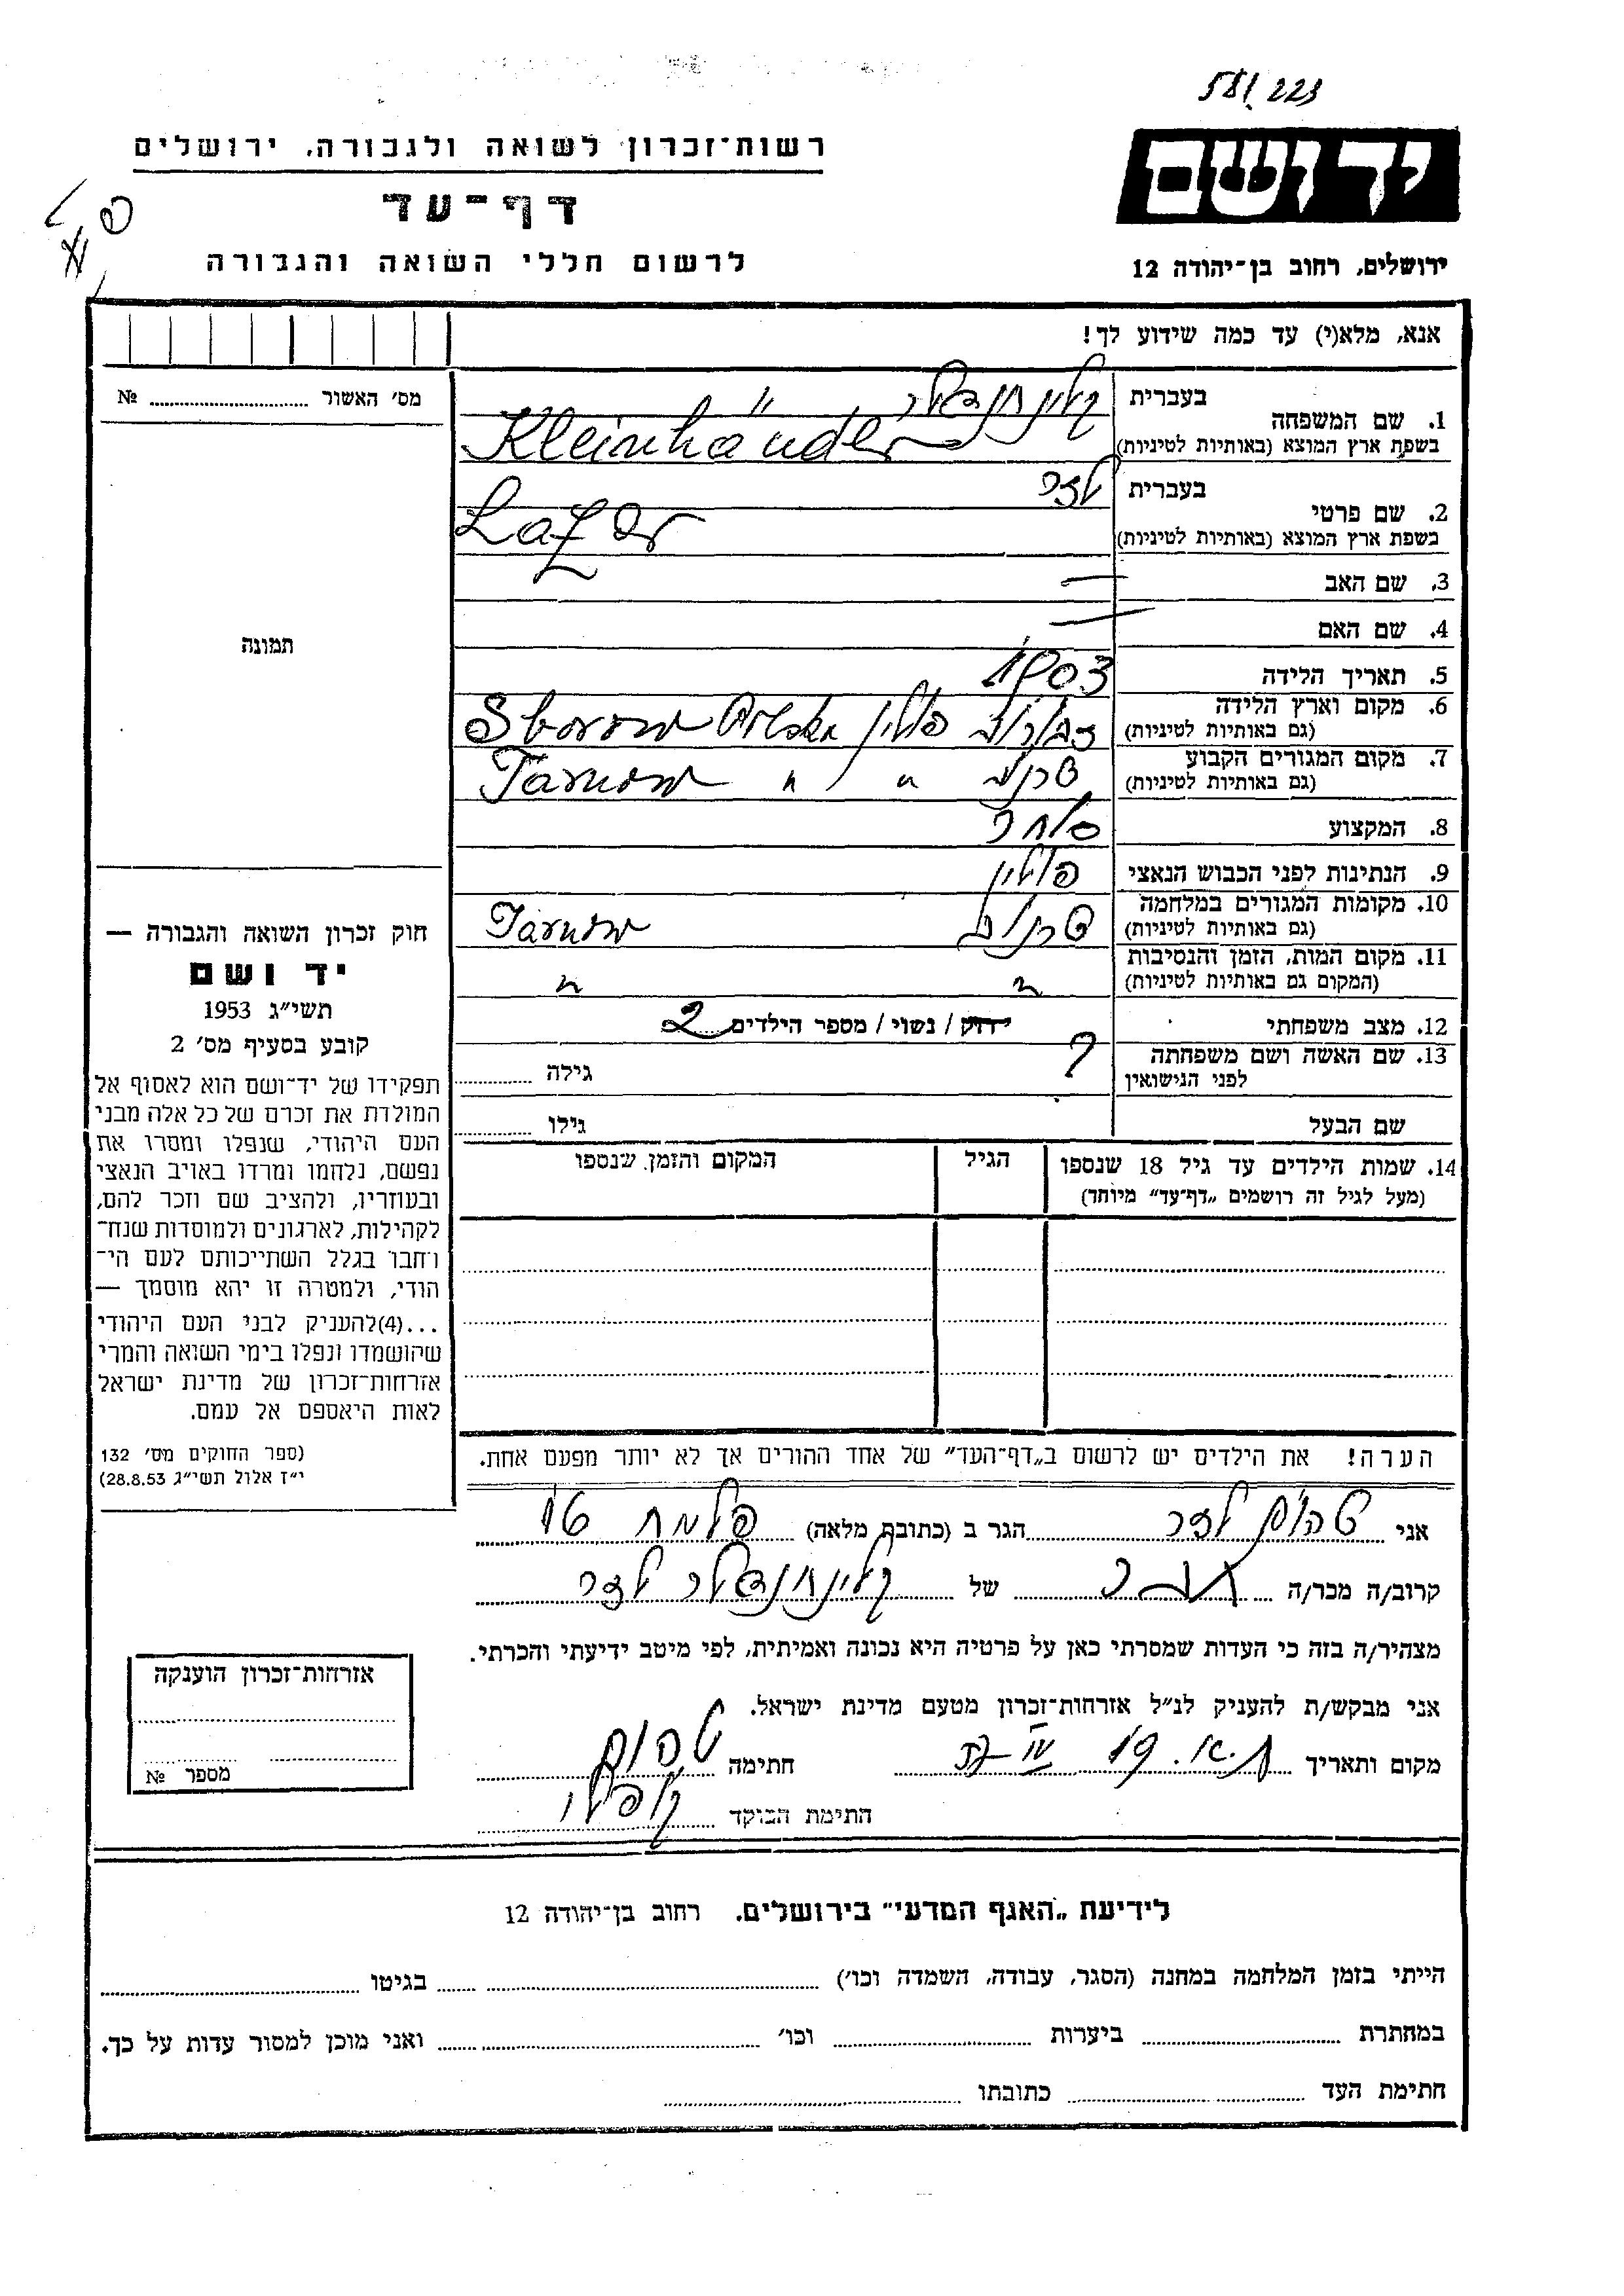 58/223
רשות־זכרון לשואה ולגבורה, ירושלים
יד ושם
דף־עד
לרשום חללי השואה והגבורה
ירושלים, רחוב בן־יהודה 12
אנא, מלא(י) עד כמה שידוע לך!
מס' האשור № 
1. שם המשפחה
בעברית קליינהנדלר
בשפת ארץ המוצא (באותיות לטיניות) Kleinhändler
2. שם פרטי
בעברית לזר
בשפת ארץ המוצא (באותיות לטיניות) Lazar
3. שם האב —
4. שם האם —
5. תאריך הלידה 1903
6. מקום וארץ הלידה
(גם באותיות לטיניות) זבורוב פולין Sborow Polska
7. מקום המגורים הקבוע
(גם באותיות לטיניות) טרנוב " " Tarnow
8. המקצוע סוחר
9. הנתינות לפני הכבוש הנאצי פולין
10. מקומות המגורים במלחמה
(גם באותיות לטיניות) טרנוב Tarnow
11. מקום המות, הזמן והנסיבות
(המקום גם באותיות לטיניות) " "
12. מצב משפחתי רווק / נשוי / מספר הילדים 2
13. שם האשה ושם משפחתה
לפני הנישואין ? גילה
שם הבעל גילו
14. שמות הילדים עד גיל 18 שנספו
(מעל לגיל זה רושמים „דף־עד" מיוחד)
הגיל
המקום והזמן, שנספו
תמונה
חוק זכרון השואה והגבורה —
יד ושם
תשי״ג 1953
קובע בסעיף מס' 2
תפקידו של יד־ושם הוא לאסוף אל
המולדת את זכרם של כל אלה מבני
העם היהודי, שנפלו ומסרו את
נפשם, נלחמו ומרדו באויב הנאצי
ובעוזריו, ולהציב שם וזכר להם,
לקהילות, לארגונים ולמוסדות שנח־
רבו בגלל השתייכותם לעם הי־
הודי, ולמטרה זו יהא מוסמך —
...(4)להעניק לבני העם היהודי
שהושמדו ונפלו בימי השואה והמרי
אזרחות־זכרון של מדינת ישראל
לאות היאספם אל עמם.
(ספר החוקים מס' 132
י״ז אלול תשי״ג 28.8.53)
הערה! את הילדים יש לרשום ב„דף־העד" של אחד ההורים אך לא יותר מפעם אחת.
אני לזר הגר ב (כתובת מלאה) פלמח
קרוב/ה מכר/ה חבר של קליינהנדלר לזר
מצהיר/ה בזה כי העדות שמסרתי כאן על פרטיה היא נכונה ואמיתית, לפי מיטב ידיעתי והכרתי.
אני מבקש/ת להעניק לנ״ל אזרחות־זכרון מטעם מדינת ישראל.
מקום ותאריך ת.א. 19 חתימה
חתימת הפוקד
אזרחות־זכרון הוענקה
מספר №
לידיעת „האגף המדעי" בירושלים, רחוב בן־יהודה 12
הייתי בזמן המלחמה במחנה (הסגר, עבודה, השמדה וכו') בגיטו
במחתרת ביערות וכו' ואני מוכן למסור עדות על כך.
חתימת העד כתובתו